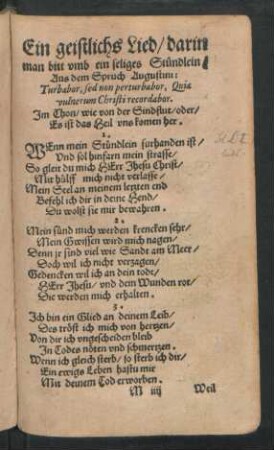 Ein geistlichs Lied / darin
man bitt vmb ein seliges Stündlein /
Aus dem Spruch Augustini:
Turbabor, sed non perturbabor, Quia
vulnerum Christi recordabor.
Im Thon / wie von der Sindflut / oder /
Es ist das Heil vns komen her.
1.
WEnn mein Stündlein furhanden ist /
Vnd sol hinfarn mein strasse /
So gleit du mich HErr Jhesu Christ /
Mit hülff mich nicht verlasse /
Mein Seel an meinem letzten end
Befehl ich dir in deine Hend /
Du wolst sie mir bewahren.
2.
Mein sünd mich werden krencken sehr /
Mein Gwissen wird mich nagen /
Denn jr sind viel wie Sandt am Meer /
Doch wil ich nicht verzagen /
Gedencken wil ich an dein tode /
HErr Jhesu / vnd dem Wunden rot /
Die werden mich erhalten.
3.
Ich bin ein Glied an deinem Leib /
Des tröst ich mich von hertzen /
Von dir ich vngescheiden bleib
In Todes nöten vnd schmertzen.
Wenn ich gleich sterb / so sterb ich dir /
Ein ewigs Leben hastu mir
Mit deinem Tod erworben.
M iiij Weil